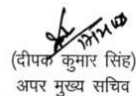 (दीपक कुमार सिंह)
अपर मुख्य सचिव